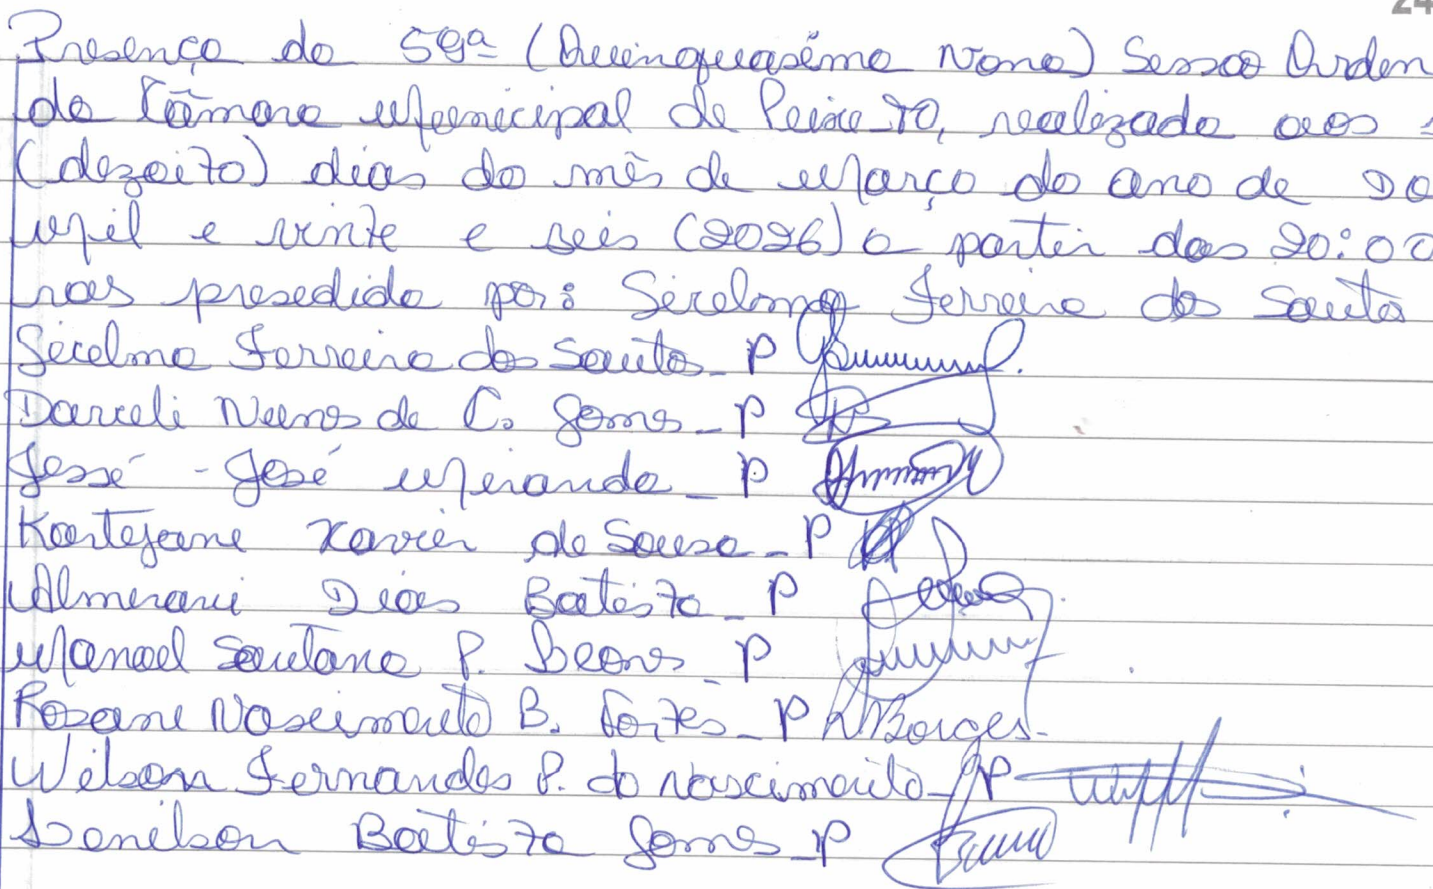 24
Presença da 59ª (Quinquasema Nona) Sessão Orden
da Câmara Municipal de Peixe-TO, realizada aos
(dezoito) dias do mês de Março do ano de do
mil e vinte e seis (2026) a partir das 20:00
ras presedida por: Sicelma Ferreira dos Santos
Sicelma Ferreira dos Santos - P
Darceli Nunes de C. Gomes - P
Jessé - José Miranda - P
Kartejane Xavier de Sousa - P
Almerani Dias Batista - P
Manoel Santana P. P
Rozane Nascimento B. Fortes - P RNBorges
Wilson Fernandes P. do Nascimento - P
Denilson Batista Gomes - P